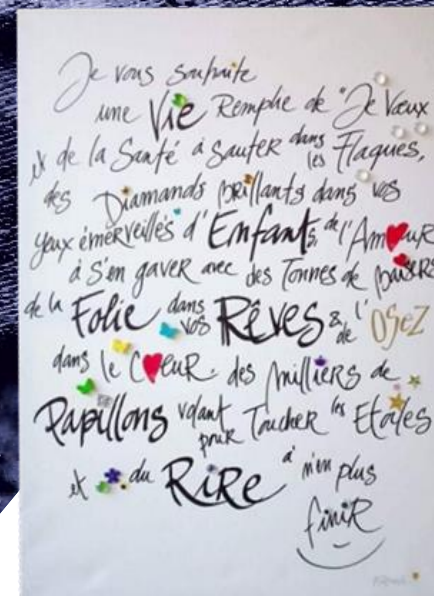 Je vous souhaite
une Vie Remplie de "Je Veux
et de la Santé à Sauter dans les Flaques,
des Diamants brillants dans vos
yeux émerveillés d'Enfants, de l'Amour
à S'en gaver avec des Tonnes de baisers
de la Folie dans vos Rêves & de l'OSEZ
dans le Cœur. des Milliers de
Papillons volant pour Toucher les Etoiles
et du RiRe à n'en plus
finiR